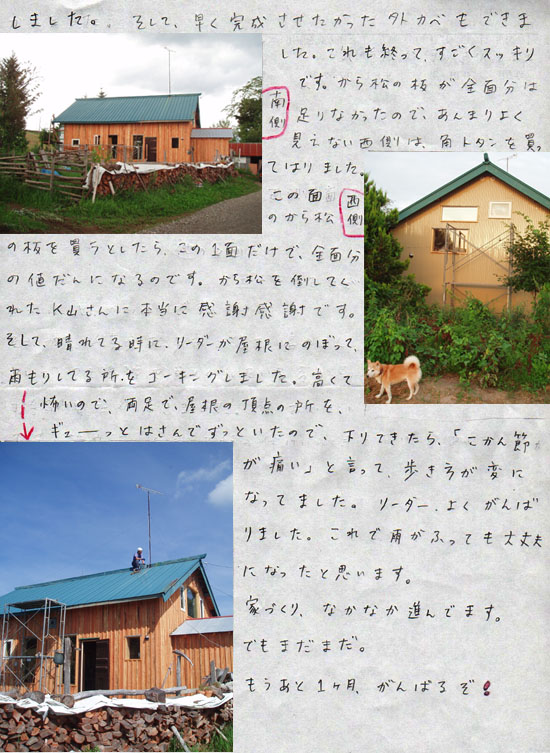 しました。。 そして、早く完成させたかった外カベもできま
した。これも終って、すごくスッキリ
です。から松の板が全面分は
足りなかったので、あんまりよく
見えない西側は、角トタンを買っ
てはりました。
南側
この面
西側
のから松
の板を買うとしたら、この1面だけで、全面分
の値だんになるのです。から松を倒してく
れたK山さんに本当に感謝感謝です。
そして、晴れてる時に、リーダーが屋根にのぼって、
雨もりしてる所をコーキングしました。高くて
怖いので、両足で、屋根の頂点の所を、
ギューーっとはさんでずっといたので、下りてきたら、「こかん節
が痛い」と言って、歩き方が変に
なってました。リーダー、よくがんば
りました。これで雨がふっても大丈夫
になったと思います。
家づくり、なかなか進んでます。
でもまだまだ。
もうあと1ヶ月、がんばるぞ!